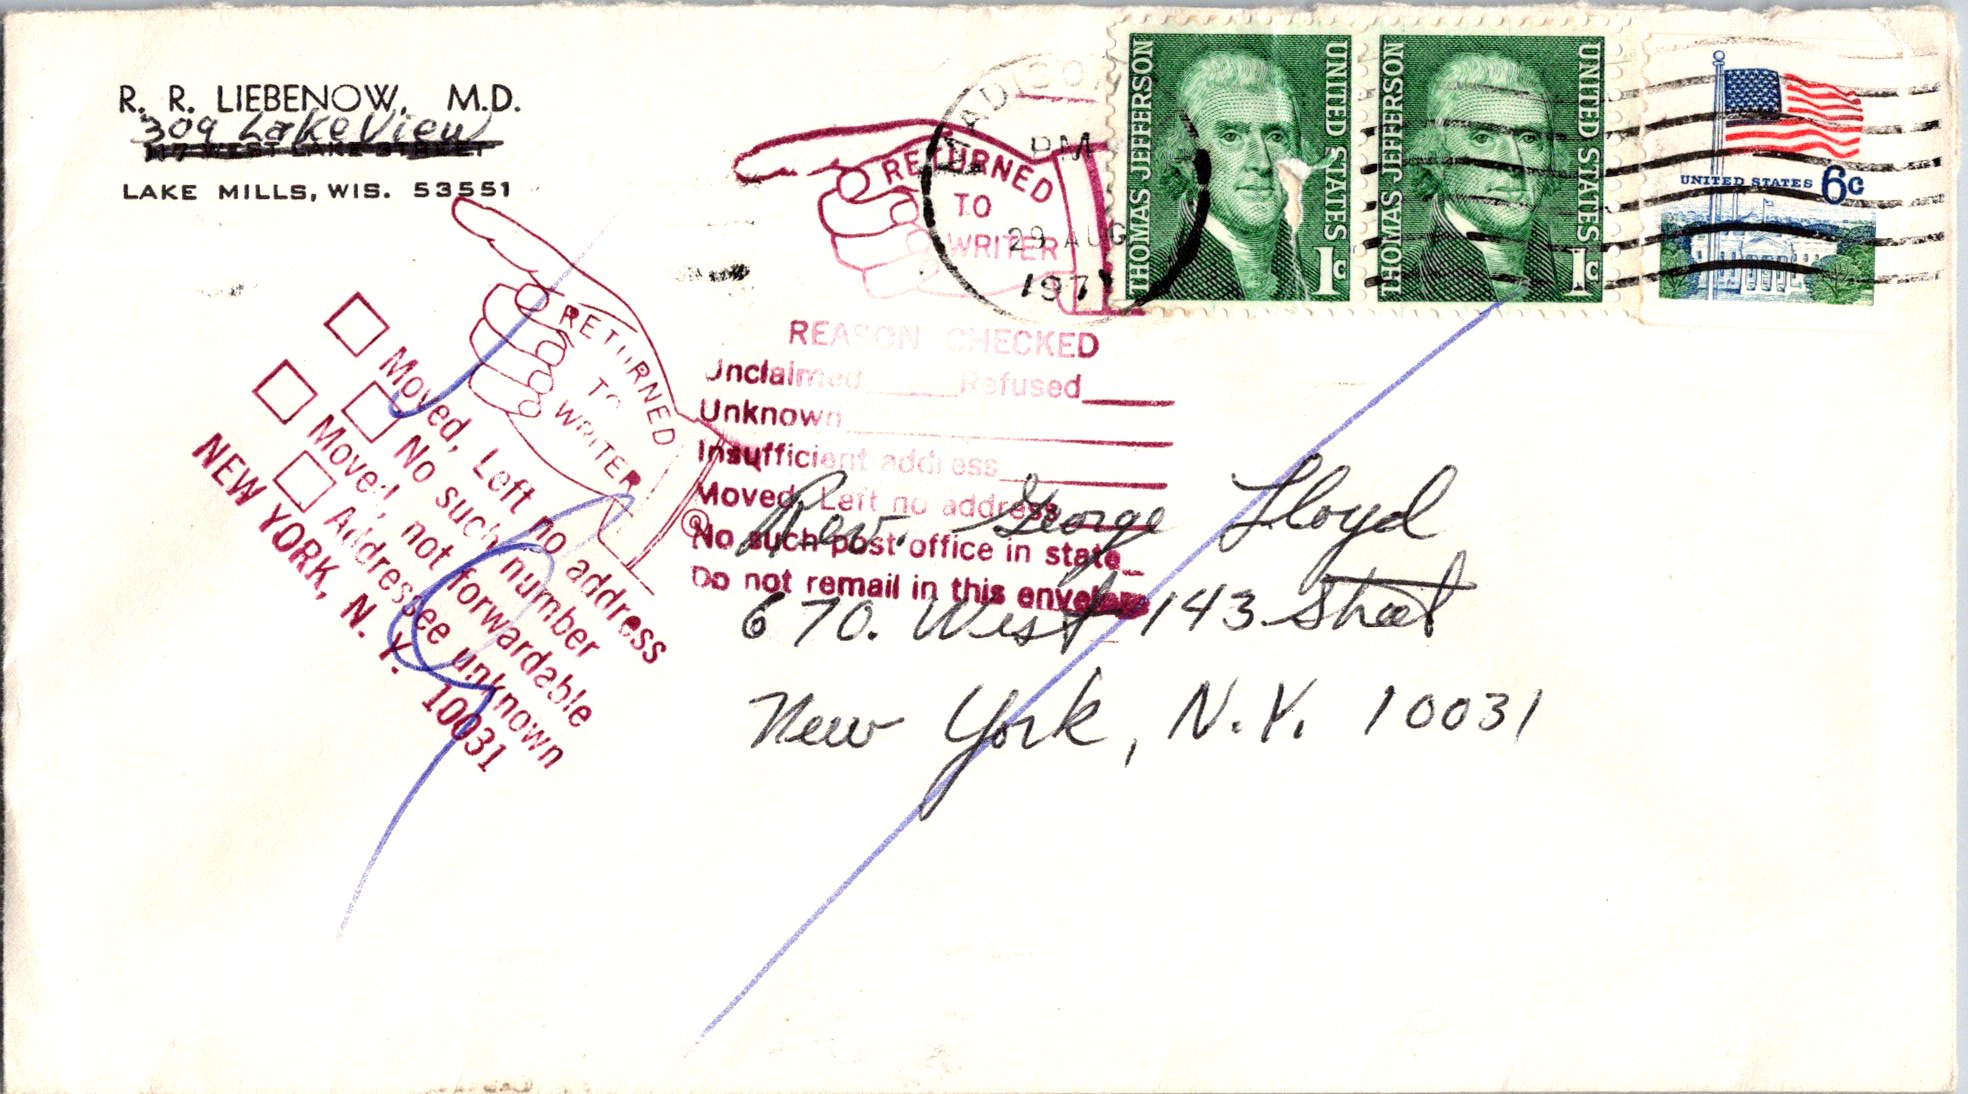 R. R. LIEBENOW, M.D.
309 Lake View
117 WEST LAKE STREET
LAKE MILLS, WIS. 53551
MADISON
PM
29 AUG
1971
THOMAS JEFFERSON
UNITED STATES
1c
THOMAS JEFFERSON
UNITED STATES
1c
UNITED STATES 6c
RETURNED
TO
WRITER
REASON CHECKED
Unclaimed Refused
Unknown
Insufficient address
Moved, Left no address
No such post office in state
Do not remail in this envelope
RETURNED
TO
WRITER
Moved, Left no address
No such number
Moved, not forwardable
Addressee unknown
NEW YORK, N. Y. 10031
Rev. George Lloyd
670. West 143 Street
New York, N.Y. 10031